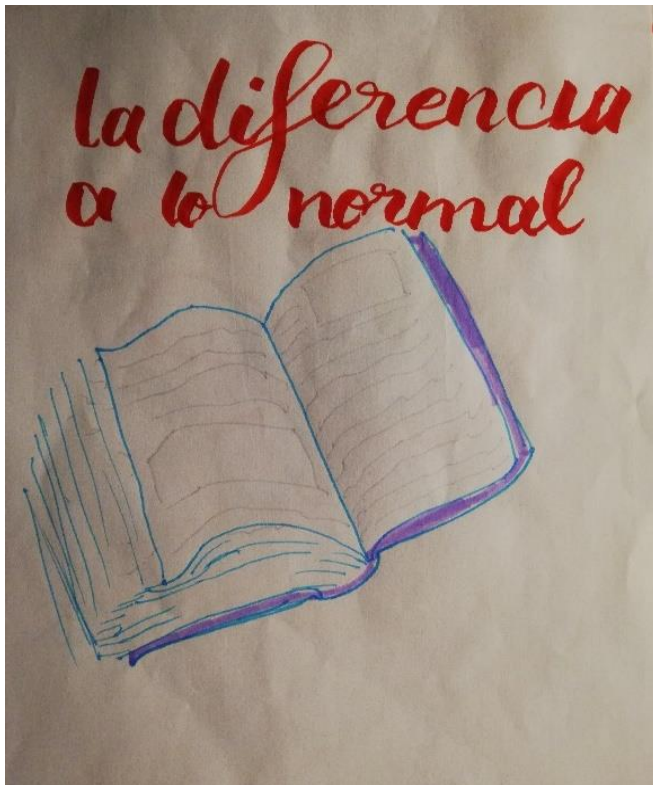 la diferencia
a lo normal